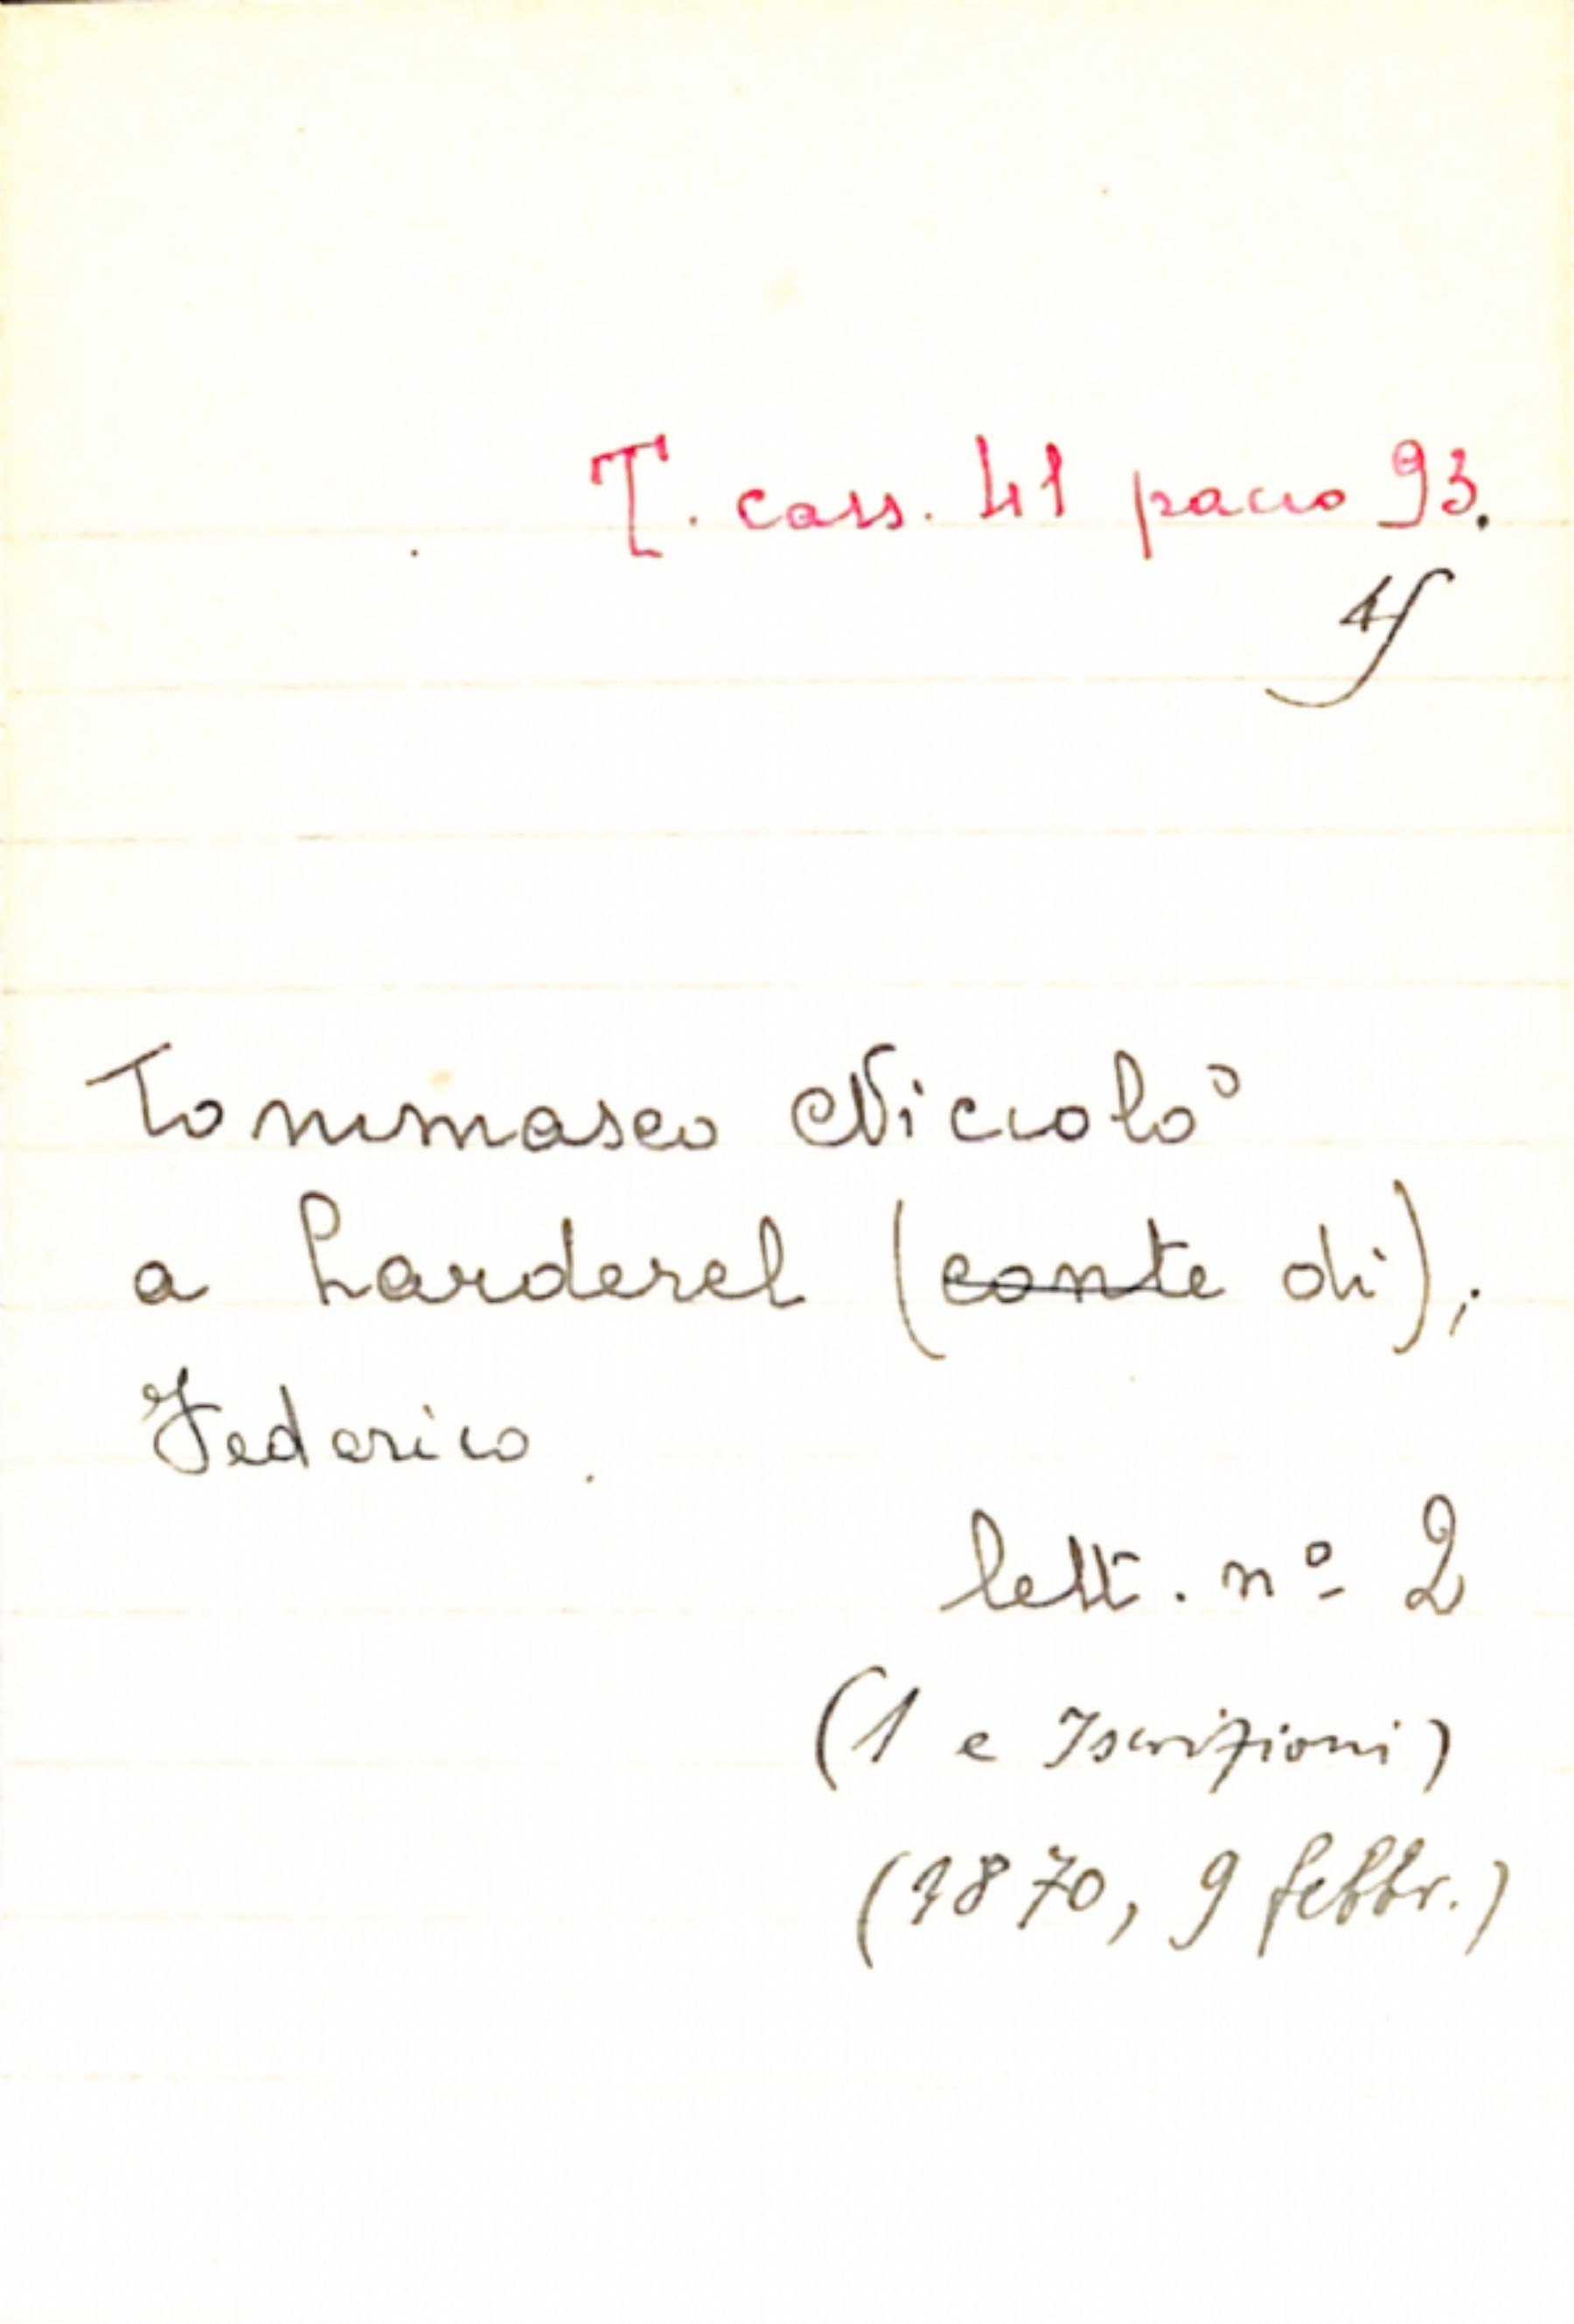 T. cass. 41 pacco 93.
4
Tommaseo Niccolò
a Larderel (conte di),
Federico.
lett. nº 2
(1 e Iscrizioni)
(1870, 9 febbr.)